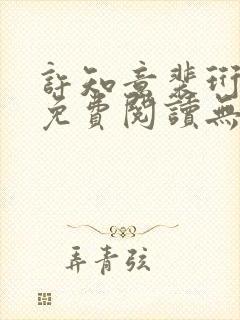 許知意裴珩
免費閱讀無
弄青弦